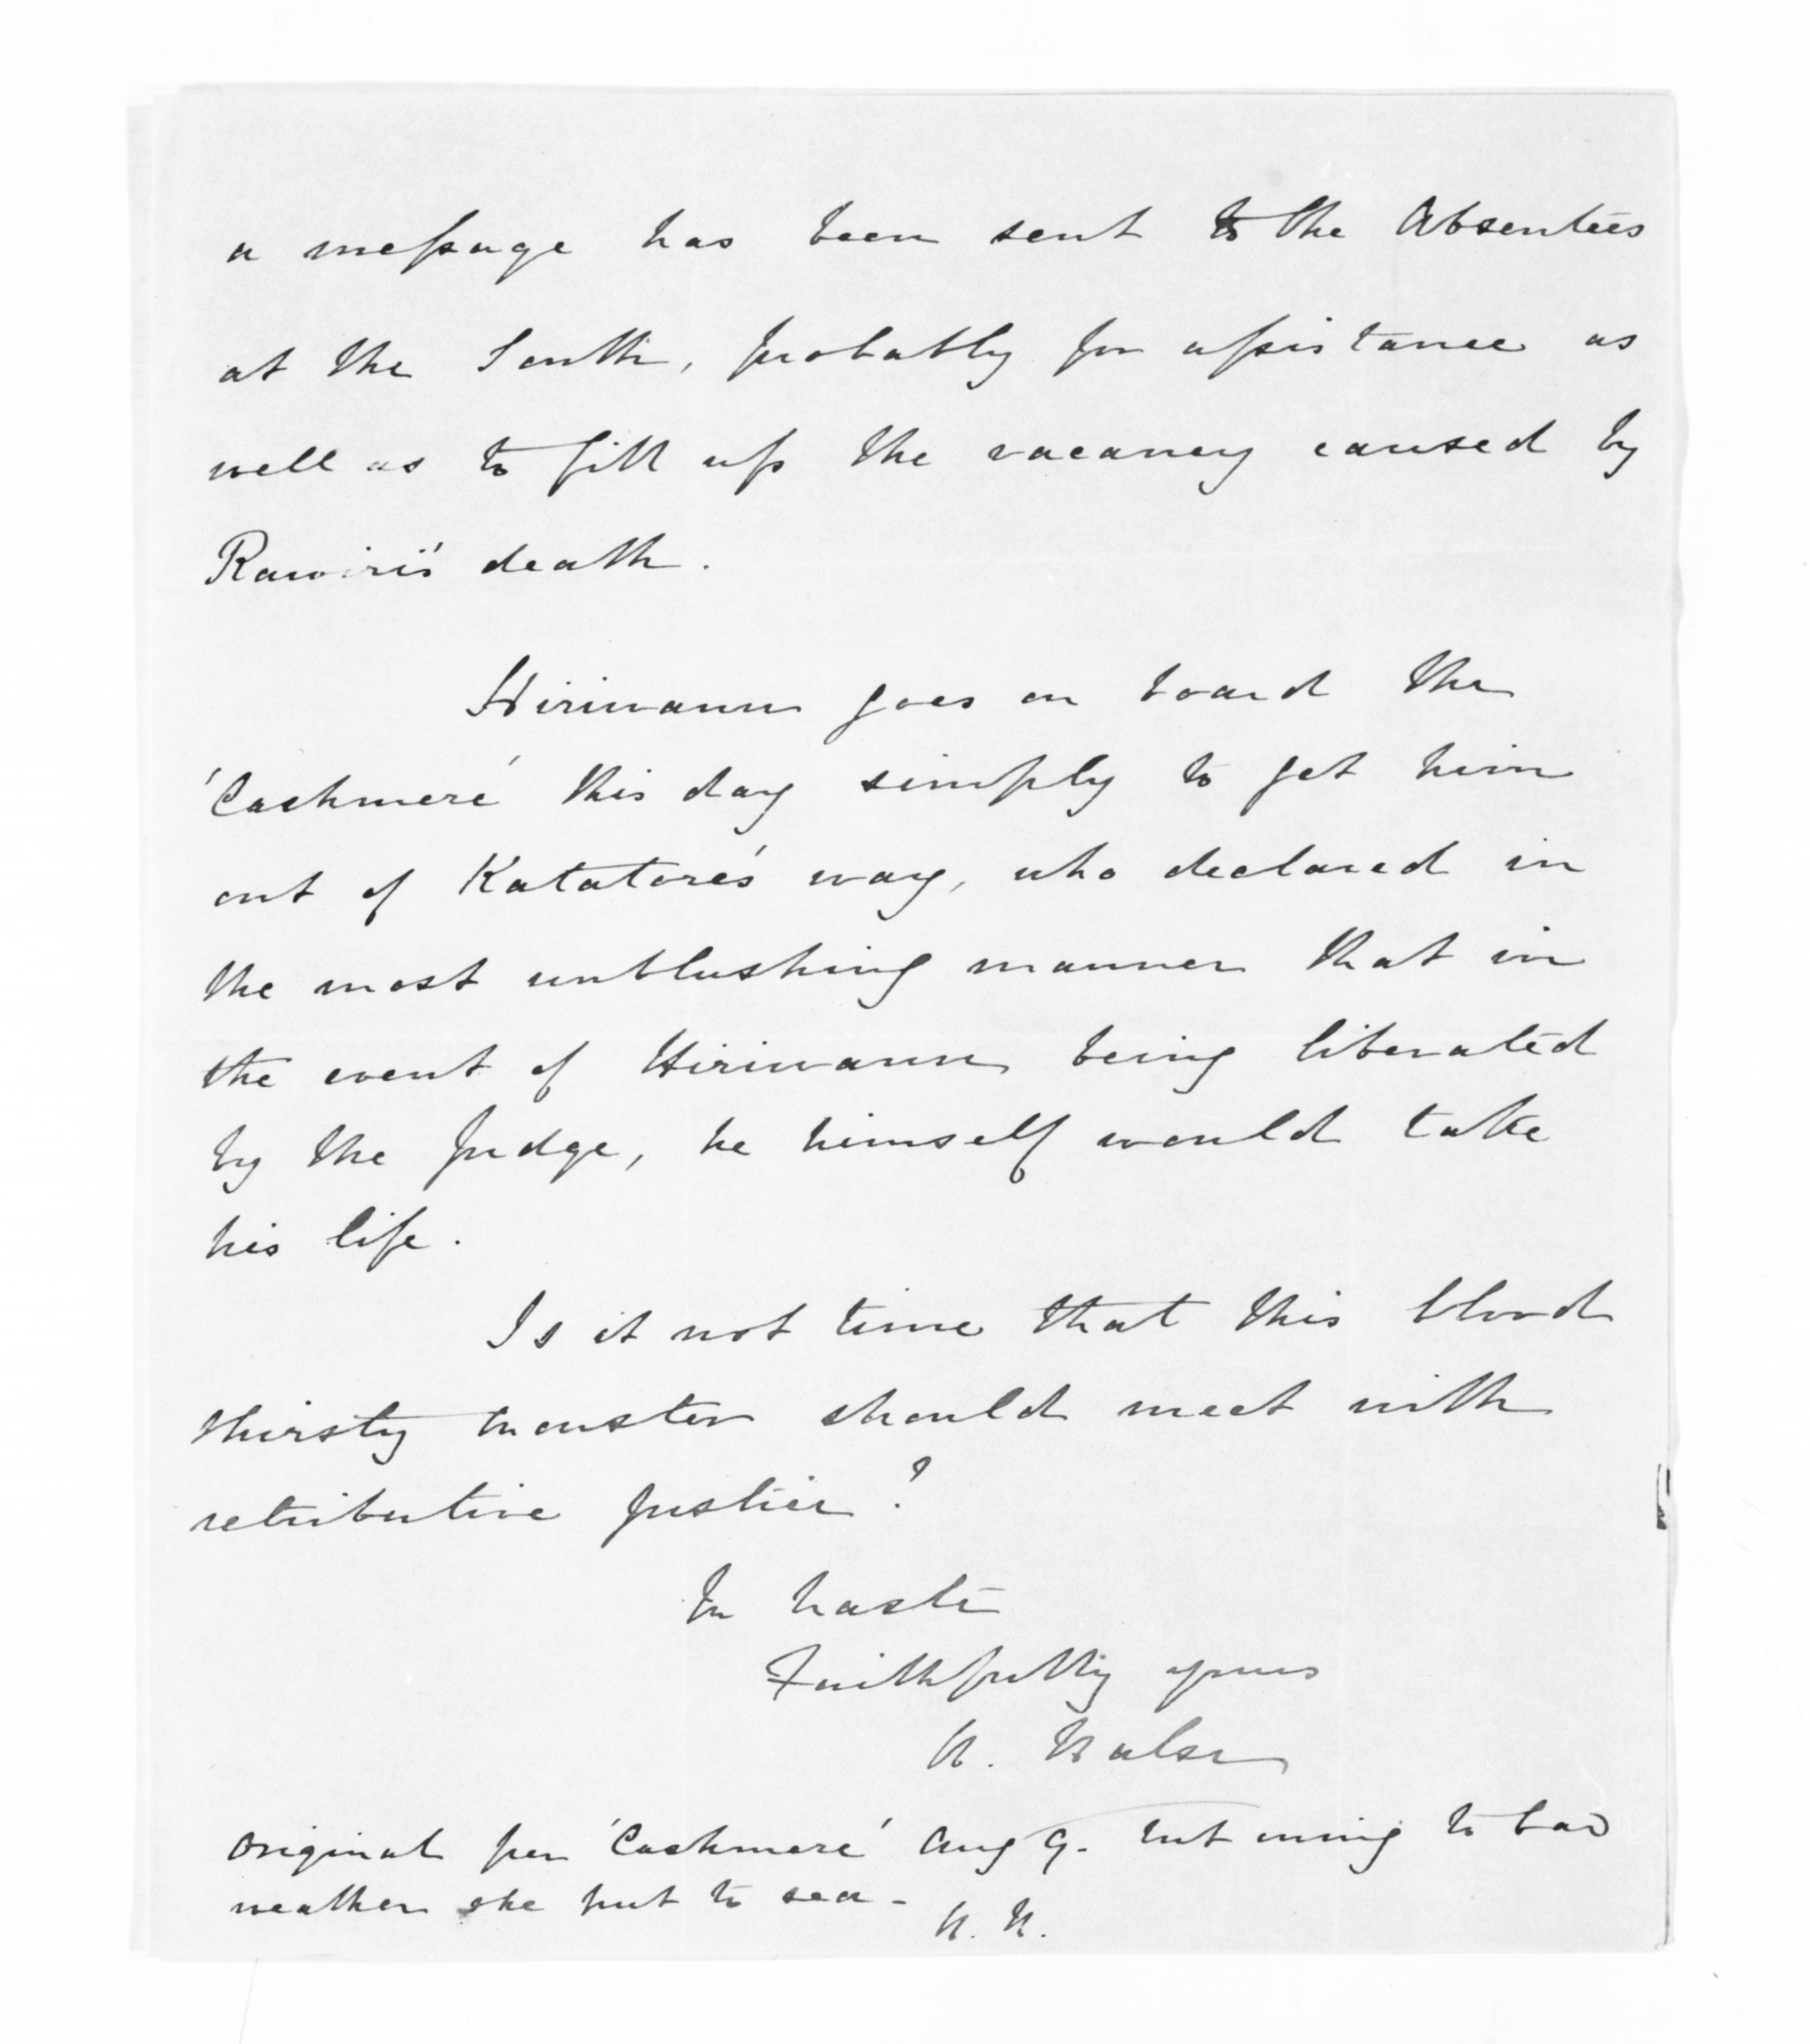 a message has been sent to the Absentees
at the South, probably for assistance as
well as to fill up the vacancy caused by
Rawiri's death.
Hirimanu goes on board the
'Cashmere' this day simply to get him
out of Katatore's way, who declared in
the most unblushing manner that in
the event of Hirimanu being liberated
by the Judge, he himself would take
his life.
Is it not time that this blood
thirsty monster should meet with
retributive justice?
In haste
Faithfully yours
H. Halse
Original per 'Cashmere' Aug 9. but owing to bad
weather she put to sea -
H. H.